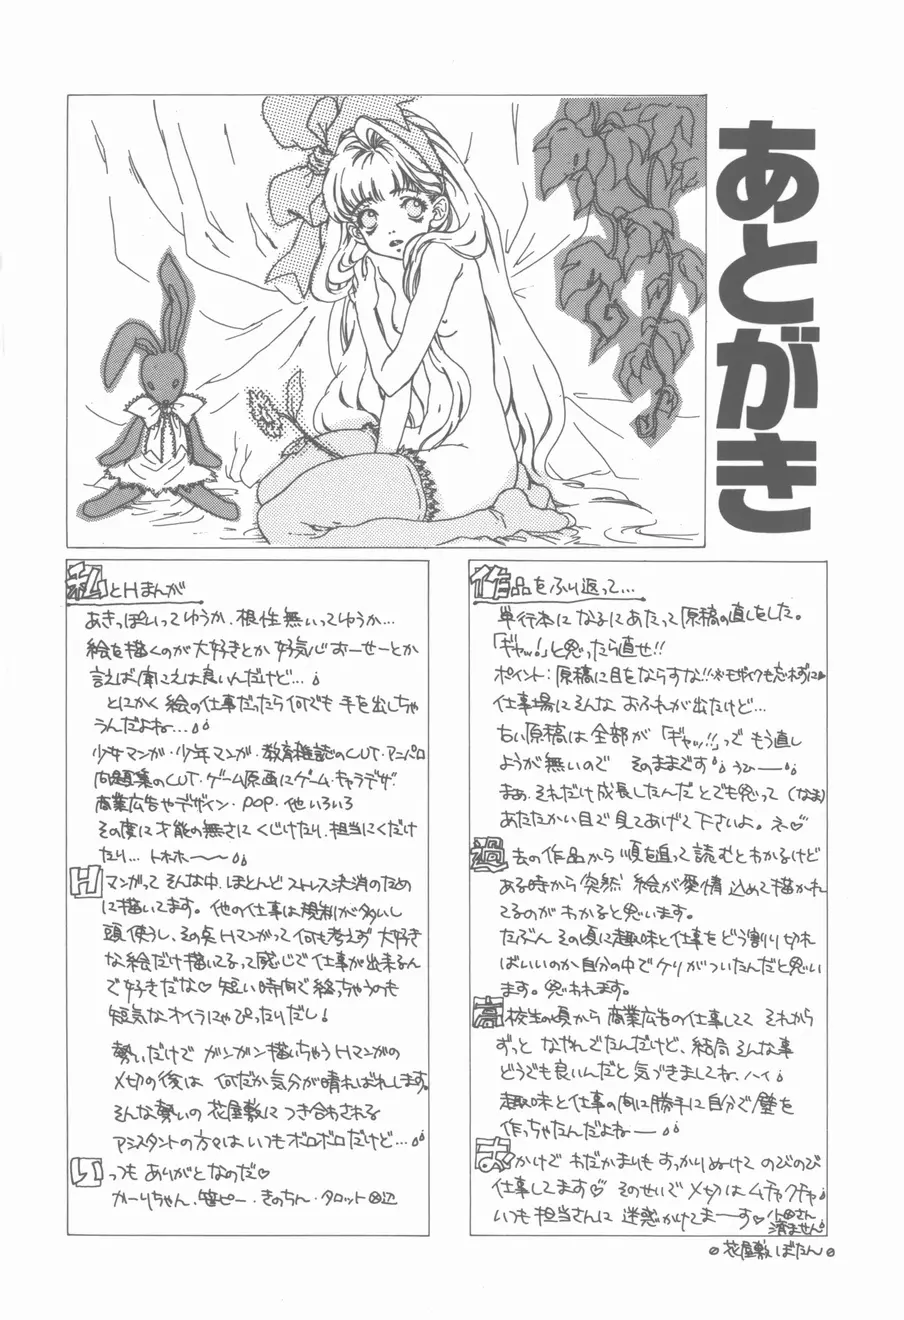 あとがき
私とHまんが
あきっぽいってゆうか、根性無いってゆうか…
絵を描くのが大好きとか好気心おーせーとか
言えば聞こえは良いんだけど…
とにかく絵の仕事だったら何でも手を出しちゃ
うんだよね…
少女マンガ・少年マンガ・教育雑誌のCUT・アニパロ
問題集のCUT・ゲーム原画にゲーム・キャラデザ
商業広告やデザイン・POP・他いろいろ
その度に才能の無さにくじけたり、担当にくだけ
たり…トホホ〜〜
Hマンガってそんな中、ほとんどストレス決消のため
に描いてます。他の仕事は規制が多いし
頭使うし、その点Hマンガって何も考えず大好き
な絵だけ描いてるって感じで仕事が出来るん
で好きだな♡短い時間で終っちゃうのも
短気なオイラにゃぴったりだし!
勢いだけでガンガン描いちゃうHマンガの
〆切の後は何だか気分が晴ればれします。
そんな勢いの花屋敷につき合わされる
アシスタントの方々はいつもボロボロだけど…
いつもありがとなのだ♡
かーりちゃん、笹ピー・きのちん・タロット
作品をふり返って…
単行本になるにあたって原稿の直しをした。
「ギャッ!」と思ったら直せ!!
ポイント:原稿に目をならすな!!※モザイクも忘れずに
仕事場にそんなおふれが出たけど…
古い原稿は全部が「ギャッ!!」でもう直し
ようが無いのでそのままです うひーー
まぁ、それだけ成長したんだとでも思って(なま)
あたたかい目で見てあげて下さいよ。ネ♡
過去の作品から順を追って読むとわかるけど
ある時から突然絵が愛情込めて描かれ
てるのがわかると思います。
たぶんその頃に趣味と仕事をどう割り切れ
ばいいのか自分の中でケリがついたんだと思い
ます。思われます。
高校生の頃から商業広告の仕事してて それから
ずっとなやんでたんだけど、結局そんな事
どうでも良いんだと気づきましてね、ハイ
趣味と仕事の間に勝手に自分で壁を
作っちゃたんだよねー
おかげでわだかまりもすっかりぬけてのびのび
仕事してます♡そのせいで〆切はムチャクチャ
いつも担当さんに迷惑かけてまーす♡小田さん
済ません
花屋敷ぼたん